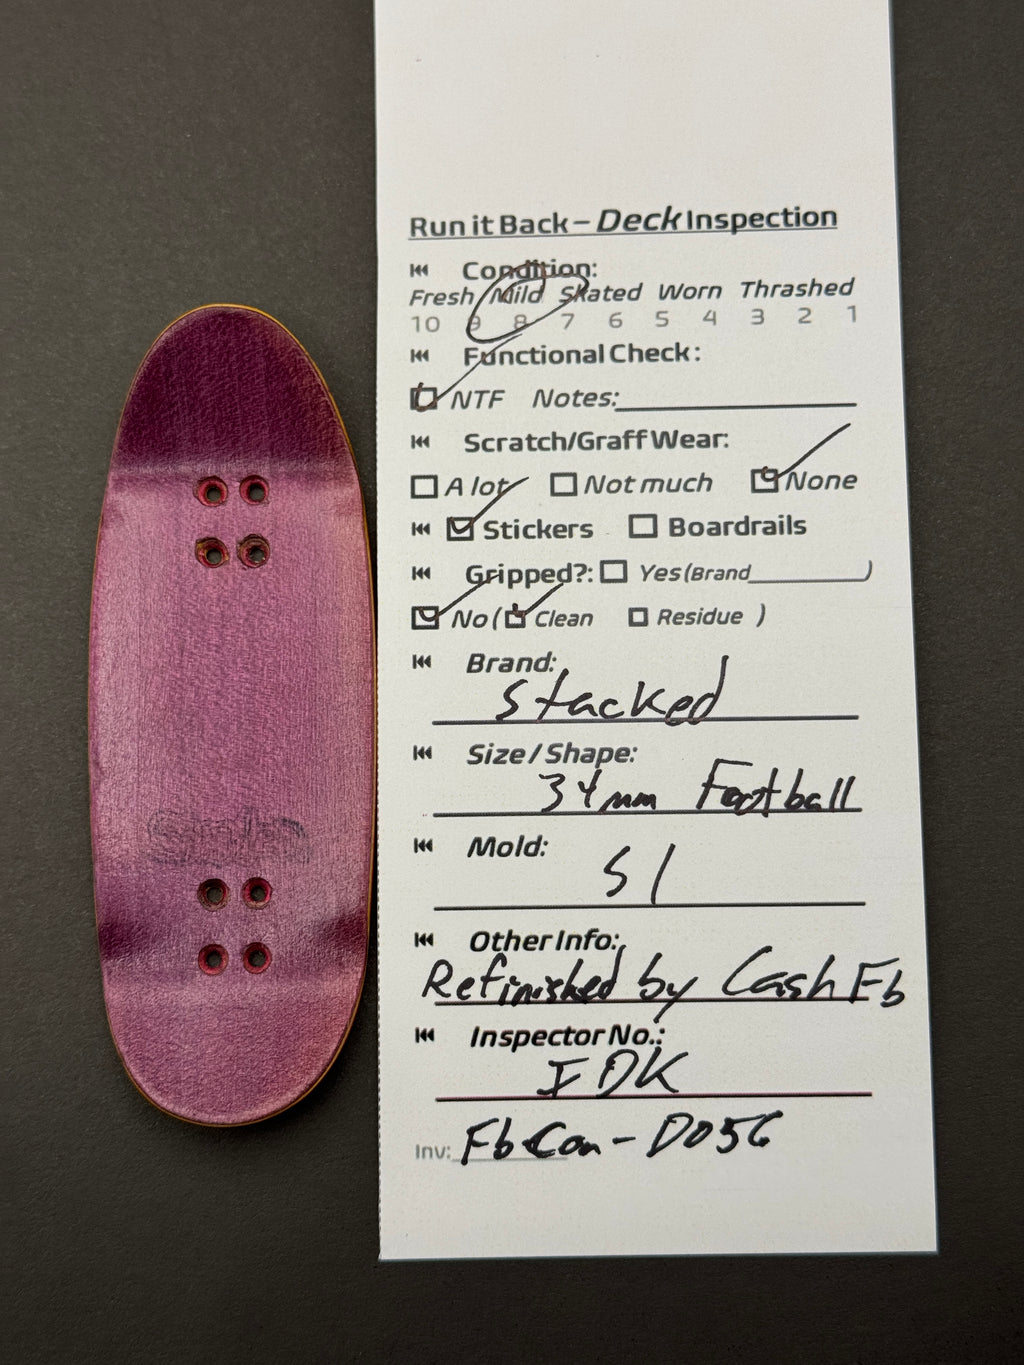 Run it Back – Deck Inspection
Condition:
Fresh Mild Skated Worn Thrashed
10 9 8 7 6 5 4 3 2 1
Functional Check:
NTF Notes:
Scratch/Graff Wear:
A lot Not much None
Stickers Boardrails
Gripped?: Yes (Brand )
No ( Clean Residue )
Brand:
Stacked
Size / Shape:
34mm Football
Mold:
S1
Other Info:
Refinished by Cash Fb
Inspector No.:
IDK
Inv: FbCon - D056